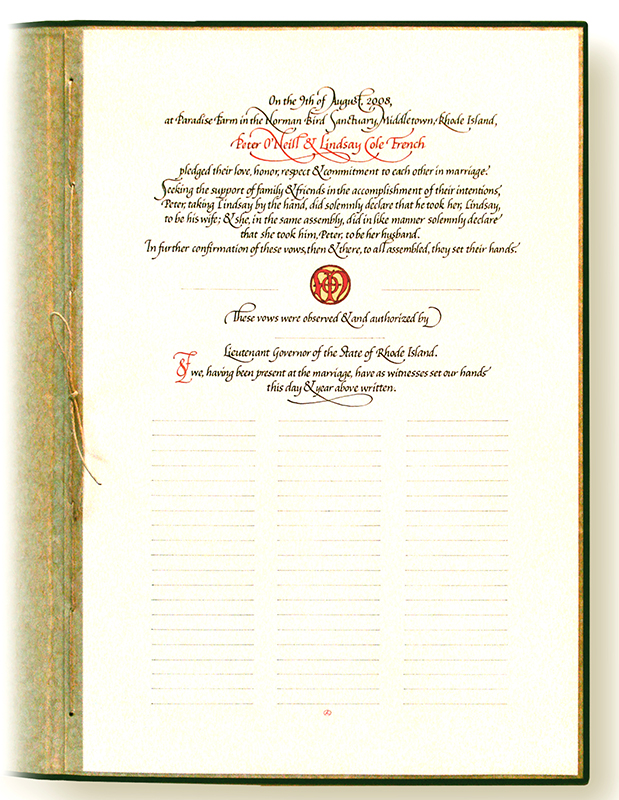 On the 9th of August, 2008,
at Paradise Farm in the Norman Bird Sanctuary, Middletown, Rhode Island,
Peter O'Neill & Lindsay Cole French
pledged their love, honor, respect & commitment to each other in marriage.
Seeking the support of family & friends in the accomplishment of their intentions,
Peter, taking Lindsay by the hand, did solemnly declare that he took her, Lindsay,
to be his wife; & she, in the same assembly, did in like manner solemnly declare
that she took him, Peter, to be her husband.
In further confirmation of these vows, then & there, to all assembled, they set their hands.
These vows were observed & and authorized by
Lieutenant Governor of the State of Rhode Island.
& we, having been present at the marriage, have as witnesses set our hands
this day & year above written.